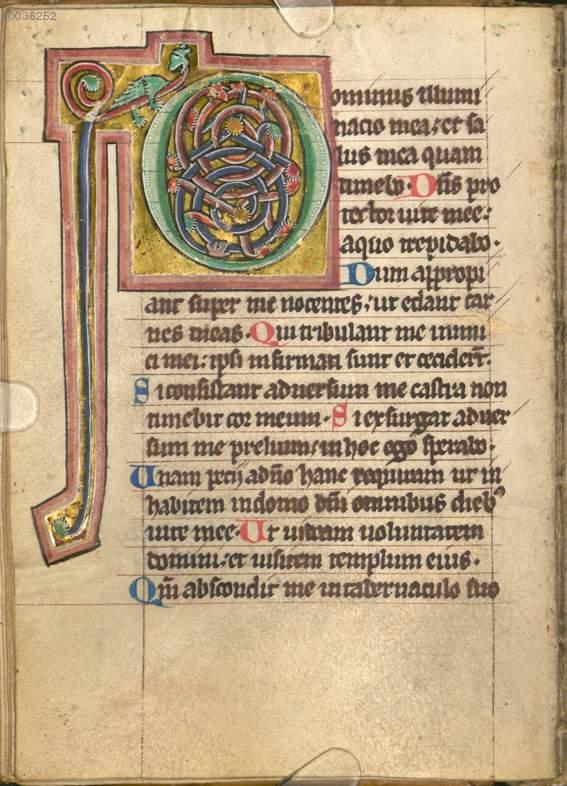 0036252
Dominus illumi
nacio mea· et sa
lus mea quam
timebo· Dn̄s pro
tector uite mee:
a quo trepidabo·
Dum appropi
ant super me nocentes, ut edant car
nes meas· Qui tribulant me inimi
ci mei: ipsi infirmati sunt et cecider̄t.
Si consistant aduersum me castra non
timebit cor meum· Si exsurgat aduer
sum me prelium, in hoc ego sperabo·
Unam pecij a dn̄o hanc requiram ut in
habitem in domo dn̄i omnibus dieb⁹
uite mee· Ut uideam uoluntatem
domini: et uisitem templum eius·
Qm̄ abscondit me in tabernaculo suo